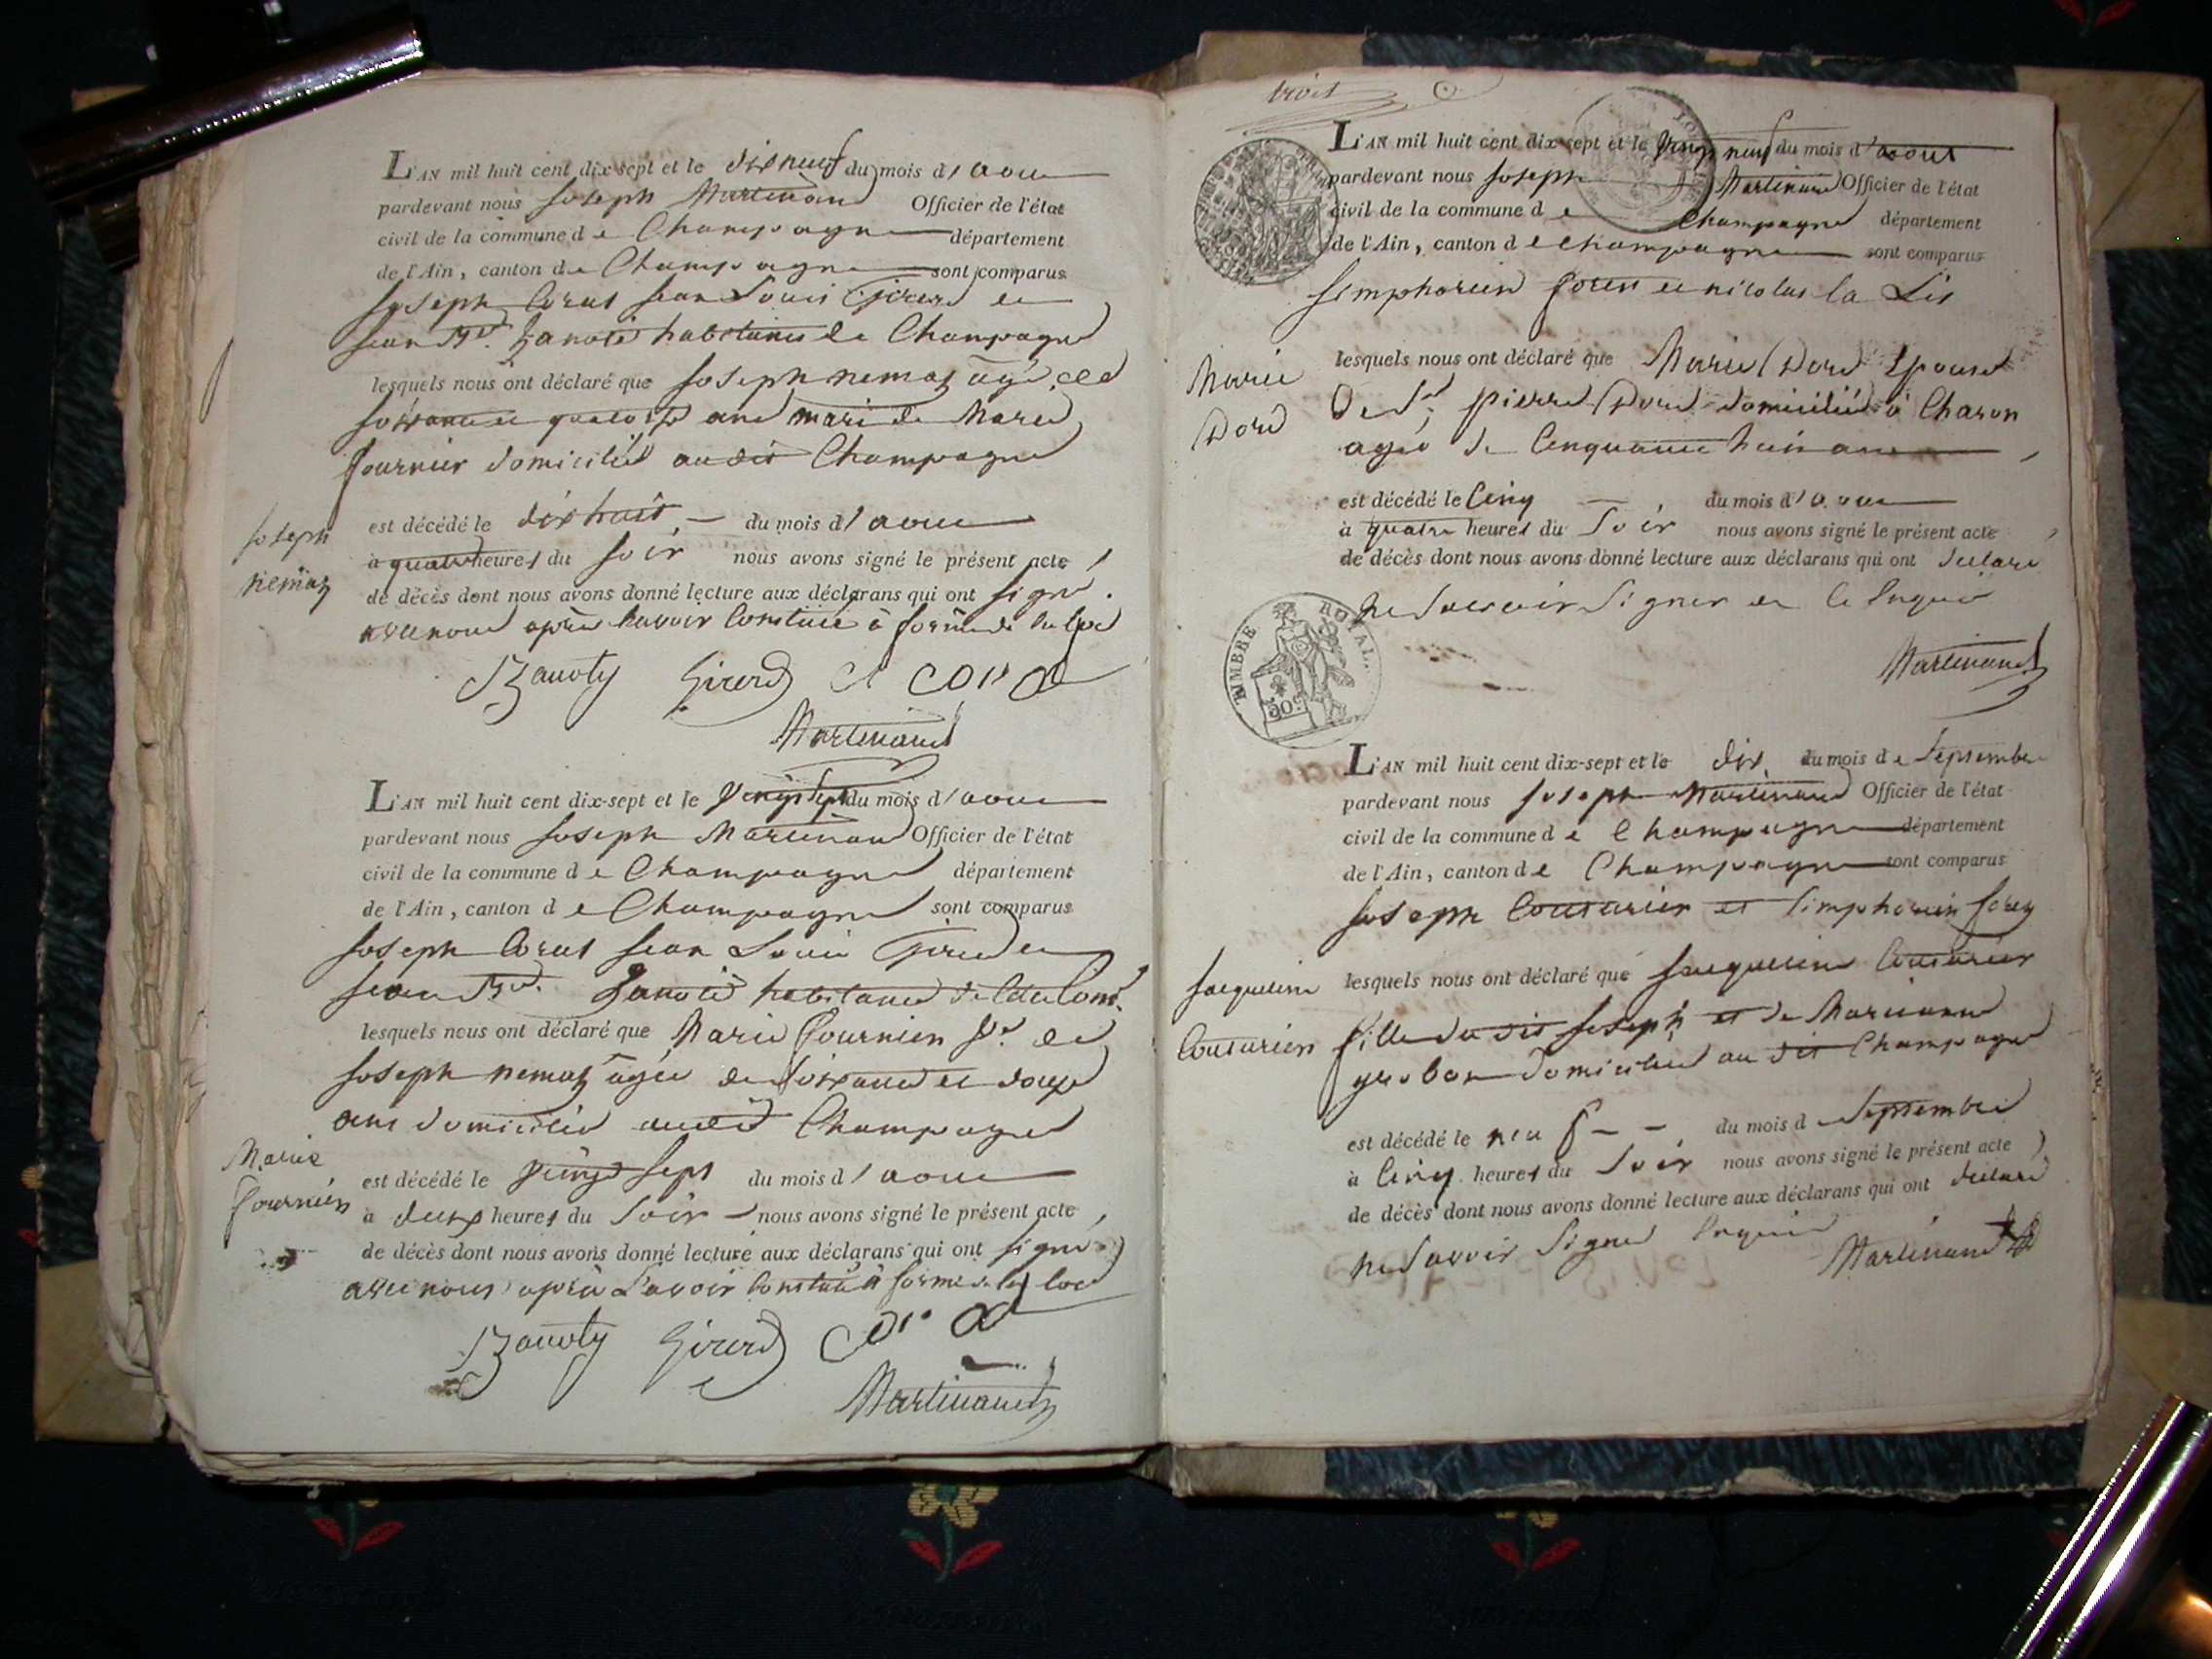 L'AN mil huit cent dix-sept et le dix neuf du mois d'aout
pardevant nous Joseph Martinand Officier de l'état
civil de la commune de Champagne département
de l'Ain, canton de Champagne sont comparus
Joseph Corat Jean Louis Girerd et
Jean habitants de Champagne
lesquels nous ont déclaré que Joseph nemoz agé de
soixante et quatorze ans mari de Marie
fournier domicilié audit Champagne
Joseph
nemoz
est décédé le dix huit du mois d'aout
à quatre heures du soir nous avons signé le présent acte
de décès dont nous avons donné lecture aux déclarans qui ont signé
avec nous après l'avoir Constaté à forme de la loi
Girerd
Martinand
L'AN mil huit cent dix-sept et le vingt sept du mois d'aout
pardevant nous Joseph Martinand Officier de l'état
civil de la commune de Champagne département
de l'Ain, canton de Champagne sont comparus
Joseph Corat Jean Louis Girerd et
Jean habitants
lesquels nous ont déclaré que Marie fournier ve de
Joseph nemoz agée de soixante et douze
ans domicilié audit Champagne
Marie
fournier
est décédé le vingt sept du mois d'aout
à deux heures du soir nous avons signé le présent acte
de décès dont nous avons donné lecture aux déclarans qui ont signé
avec nous après L'avoir Constaté à forme de la loi
Girerd
Martinand
trois
L'AN mil huit cent dix-sept et le vingt neuf du mois d'aout
pardevant nous Joseph Martinand Officier de l'état
civil de la commune de Champagne département
de l'Ain, canton de Champagne sont comparus
Simphorien forez et nicolas la Lis
Marie
Doré
lesquels nous ont déclaré que Marie Doré Epouse
de Sr pierre Doré domicilié à Charon
agée de Cinquante huit ans
est décédé le Cinq du mois d'aout
à quatre heures du Soir nous avons signé le présent acte
de décès dont nous avons donné lecture aux déclarans qui ont déclaré
ne Scavoir Signer de Ce Enquis
TIMBRE ROYAL
Martinand
L'AN mil huit cent dix-sept et le dix du mois de Septembre
pardevant nous Joseph Martinand Officier de l'état
civil de la commune de Champagne département
de l'Ain, canton de Champagne sont comparus
Joseph Couturier et Simphorien forez
Jacqueline
Couturier
lesquels nous ont déclaré que Jacqueline Couturier
fille du dit Joseph et de Marianne
domicilié au dit Champagne
est décédé le neuf du mois de Septembre
à Cinq heures du Soir nous avons signé le présent acte
de décès dont nous avons donné lecture aux déclarans qui ont déclaré
ne Savoir Signer Enquis
Martinand